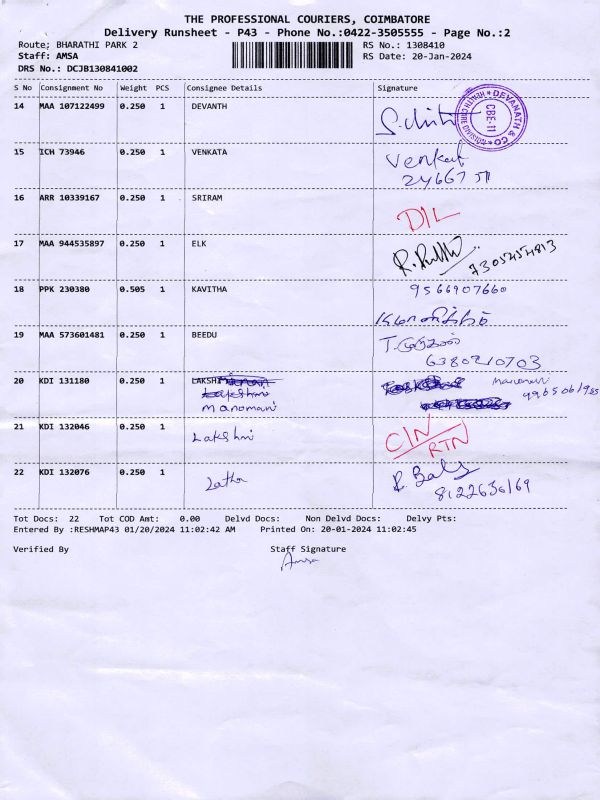 THE PROFESSIONAL COURIERS, COIMBATORE
Delivery Runsheet - P43 - Phone No.:0422-3505555 - Page No.:2
Route; BHARATHI PARK 2 RS No.: 1308410
Staff: AMSA RS Date: 20-Jan-2024
DRS No.: DCJB130841002
S No Consignment No Weight PCS Consignee Details Signature
14 MAA 107122499 0.250 1 DEVANTH
DEVANATH & CO HEALTH CARE DIVISION CBE-11
15 ICH 73946 0.250 1 VENKATA Venkat
16 ARR 10339167 0.250 1 SRIRAM D/L
17 MAA 944535897 0.250 1 ELK
18 PPK 230380 0.505 1 KAVITHA 9566907660
19 MAA 573601481 0.250 1 BEEDU
6380210703
20 KDI 131180 0.250 1 LAKSHMI
Lakshmi
Manomani
21 KDI 132046 0.250 1 Lakshmi C/N
RTN
22 KDI 132076 0.250 1 Latha R. Balu
8122636169
Tot Docs: 22 Tot COD Amt: 0.00 Delvd Docs: Non Delvd Docs: Delvy Pts:
Entered By :RESHMAP43 01/20/2024 11:02:42 AM Printed On: 20-01-2024 11:02:45
Verified By Staff Signature
Amsa